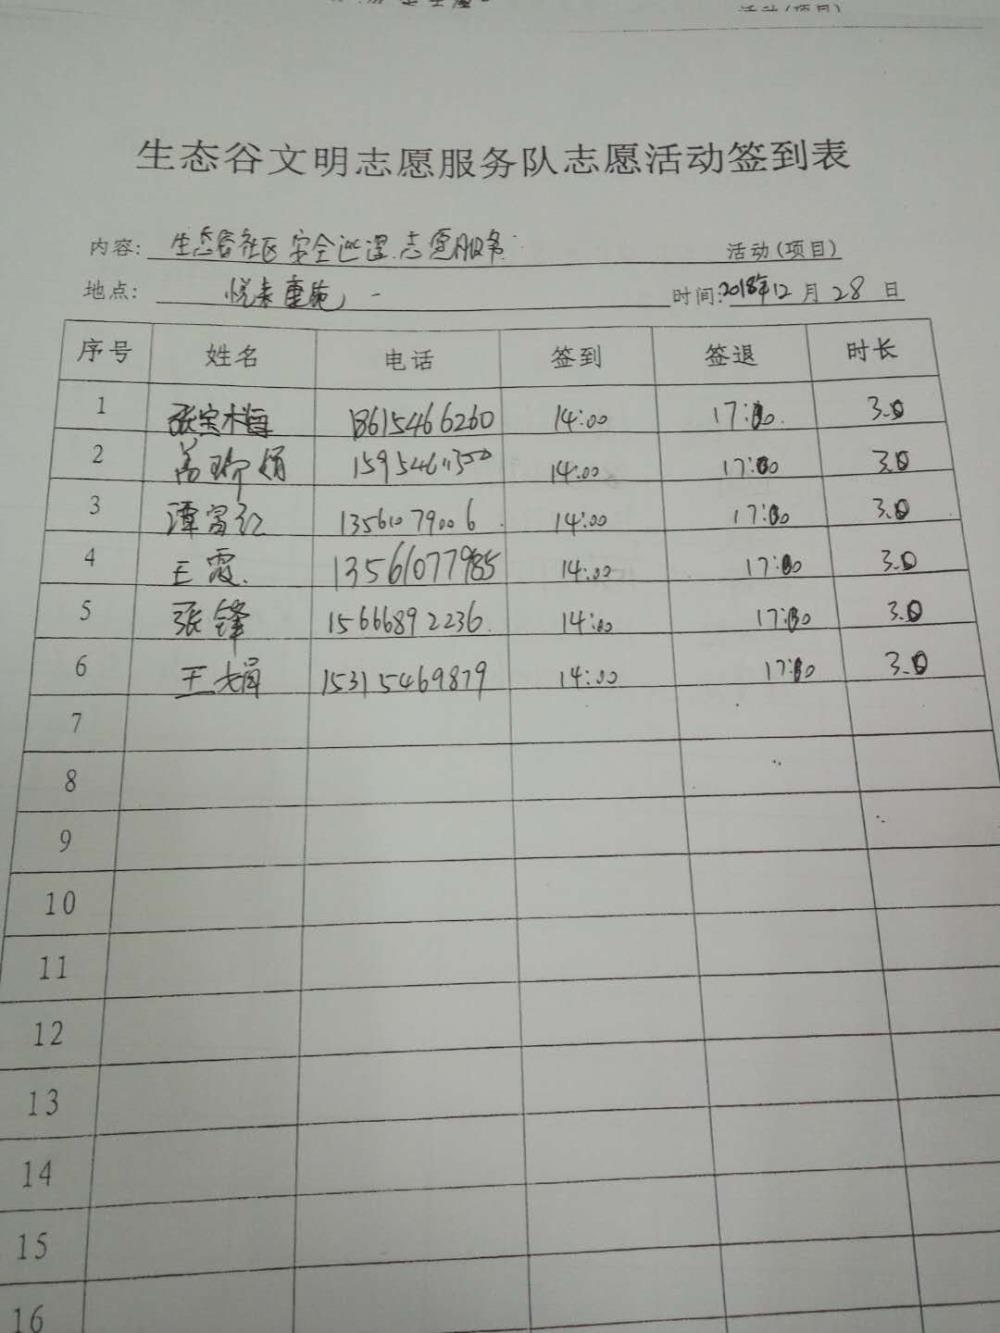 活动(项目)
生态谷文明志愿服务队志愿活动签到表
内容: 生态谷社区安全巡逻志愿服务 活动(项目)
地点: 悦来 时间: 2018年12月28日
序号 姓名 电话 签到 签退 时长
1 张宝梅 18615466260 14:00 17:00 3.0
2 14:00 17:00 3.0
3 谭富红 13561079006 14:00 17:00 3.0
4 王霞 13561077985 14:00 17:00 3.0
5 张锋 15666892236 14:00 17:00 3.0
6 王娟 15315469879 14:00 17:00 3.0
7
8
9
10
11
12
13
14
15
16